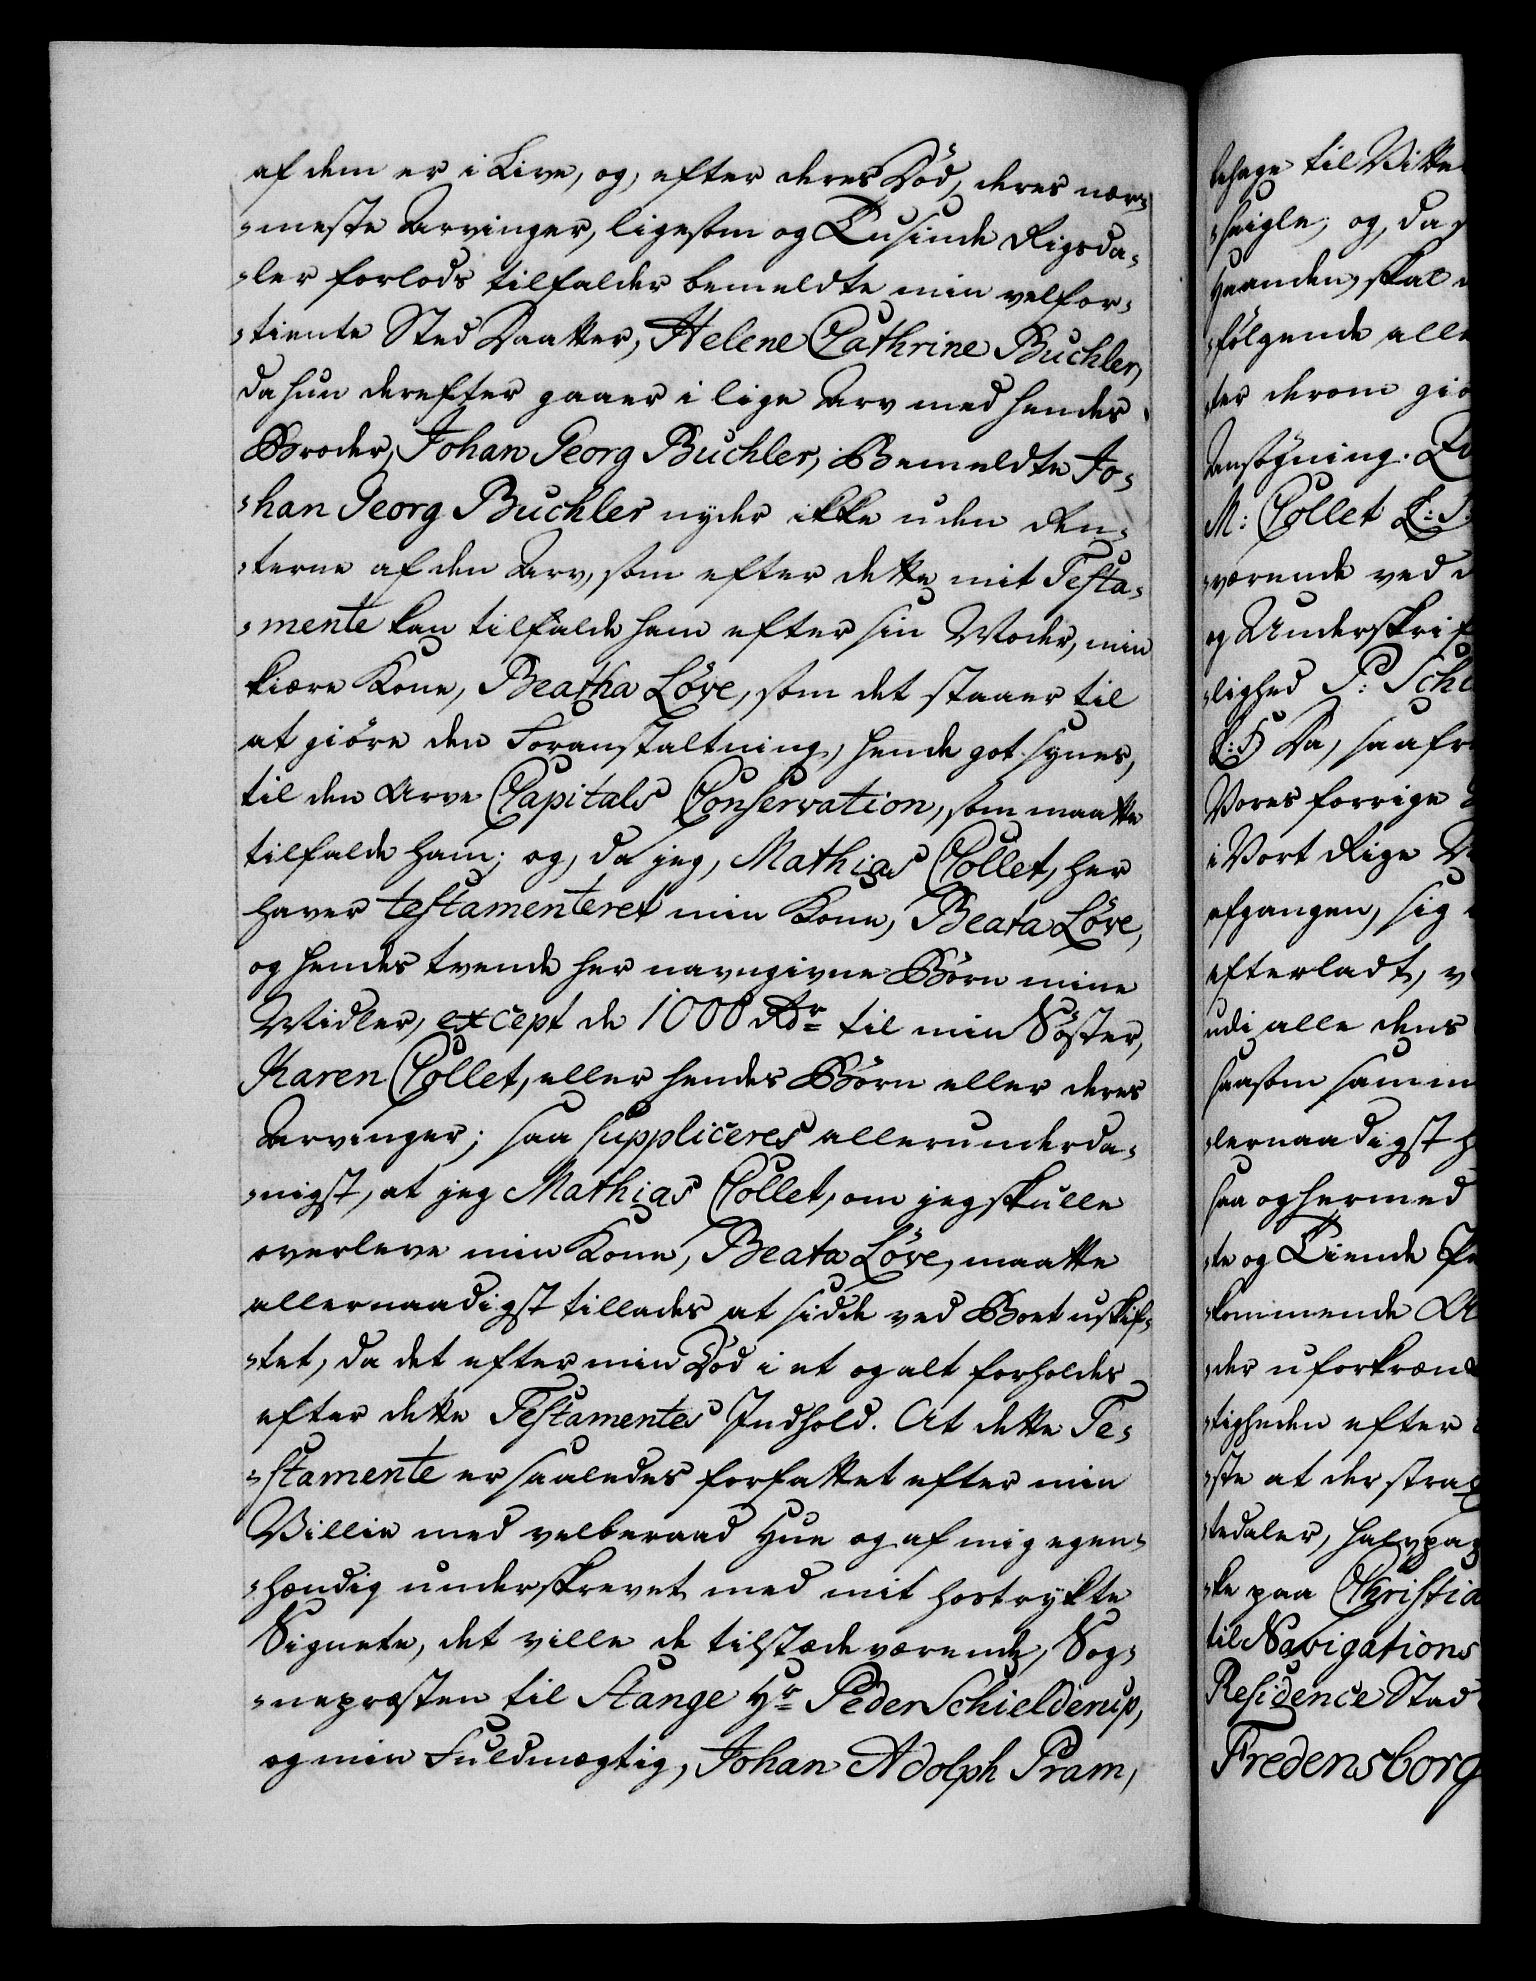 af dem er i Live, og, efter deres Død, deres nær-
-meste Arvinger, ligesom og Tusinde Rigsda-
-ler forlods tilfalder bemeldte min velfor-
-tiente Sted Daatter, Helene Cathrine Buchler,
da hun derefter gaaer i lige Arv med hendes
Broder, Johan Georg Buchler; Bemeldte Jo-
-han Georg Buchler nyder ikke uden Ren-
-terne af den Arv, som efter dette mit Testa-
-mente kan tilfalde ham efter sin Moder, min
kiære Kone, Beatha Løve, som det staaer til
at giöre den Foranstaltning, hende got synes,
til den Arve Capitals Conservation, som maatte
tilfalde ham; og, da jeg, Mathias Collet, her
haver testamenteret min Kone, Beata Løve,
og hendes tvende her navngivne Børn mine
Midler, except de 1000 Rdr til min Søster,
Karen Collet, eller hendes Børn eller deres
Arvinger; saa suppliceres allerunderda-
-nigst, at jeg Mathias Collet, om jeg skulle
overleve min Kone, Beata Løve, maatte
allernaadigst tillades at sidde ved Boet uskif-
-tet, da det efter min Død i et og alt forholdes
efter dette Testamentes Indhold. At dette Te-
-stamente er saaledes forfattet efter min
Villie med velberaad Hue og af mig egen-
-hændig underskrevet med mit hostrykte
Signete, det ville de tilstædeværende, Sog-
-nepræsten til Stange Hr Peder Schielderup,
og min Fuldmægtig, Johan Adolph Pram,
behage til Vitte
-seigle; og, da
Haanden, skal
-følgende alle
-ter derom gio
Ansøgning.
M: Collet L: S:
-værende ved
og Underskrif
-lighed P: Schi
L:S Da, saafr
Vores forrige
i Vort Rige
afgangen, sig
efterladt, v
udi alle dens
saasom samm
-lernaadigst h
saa og hermed
-te og Tiende
-kommende A
-der uforkræn
-tigheden efter
-ste at der strax
-tedaler, halvpa
-ke paa Christia
til Navigations
Residence Stad
Fredensborg